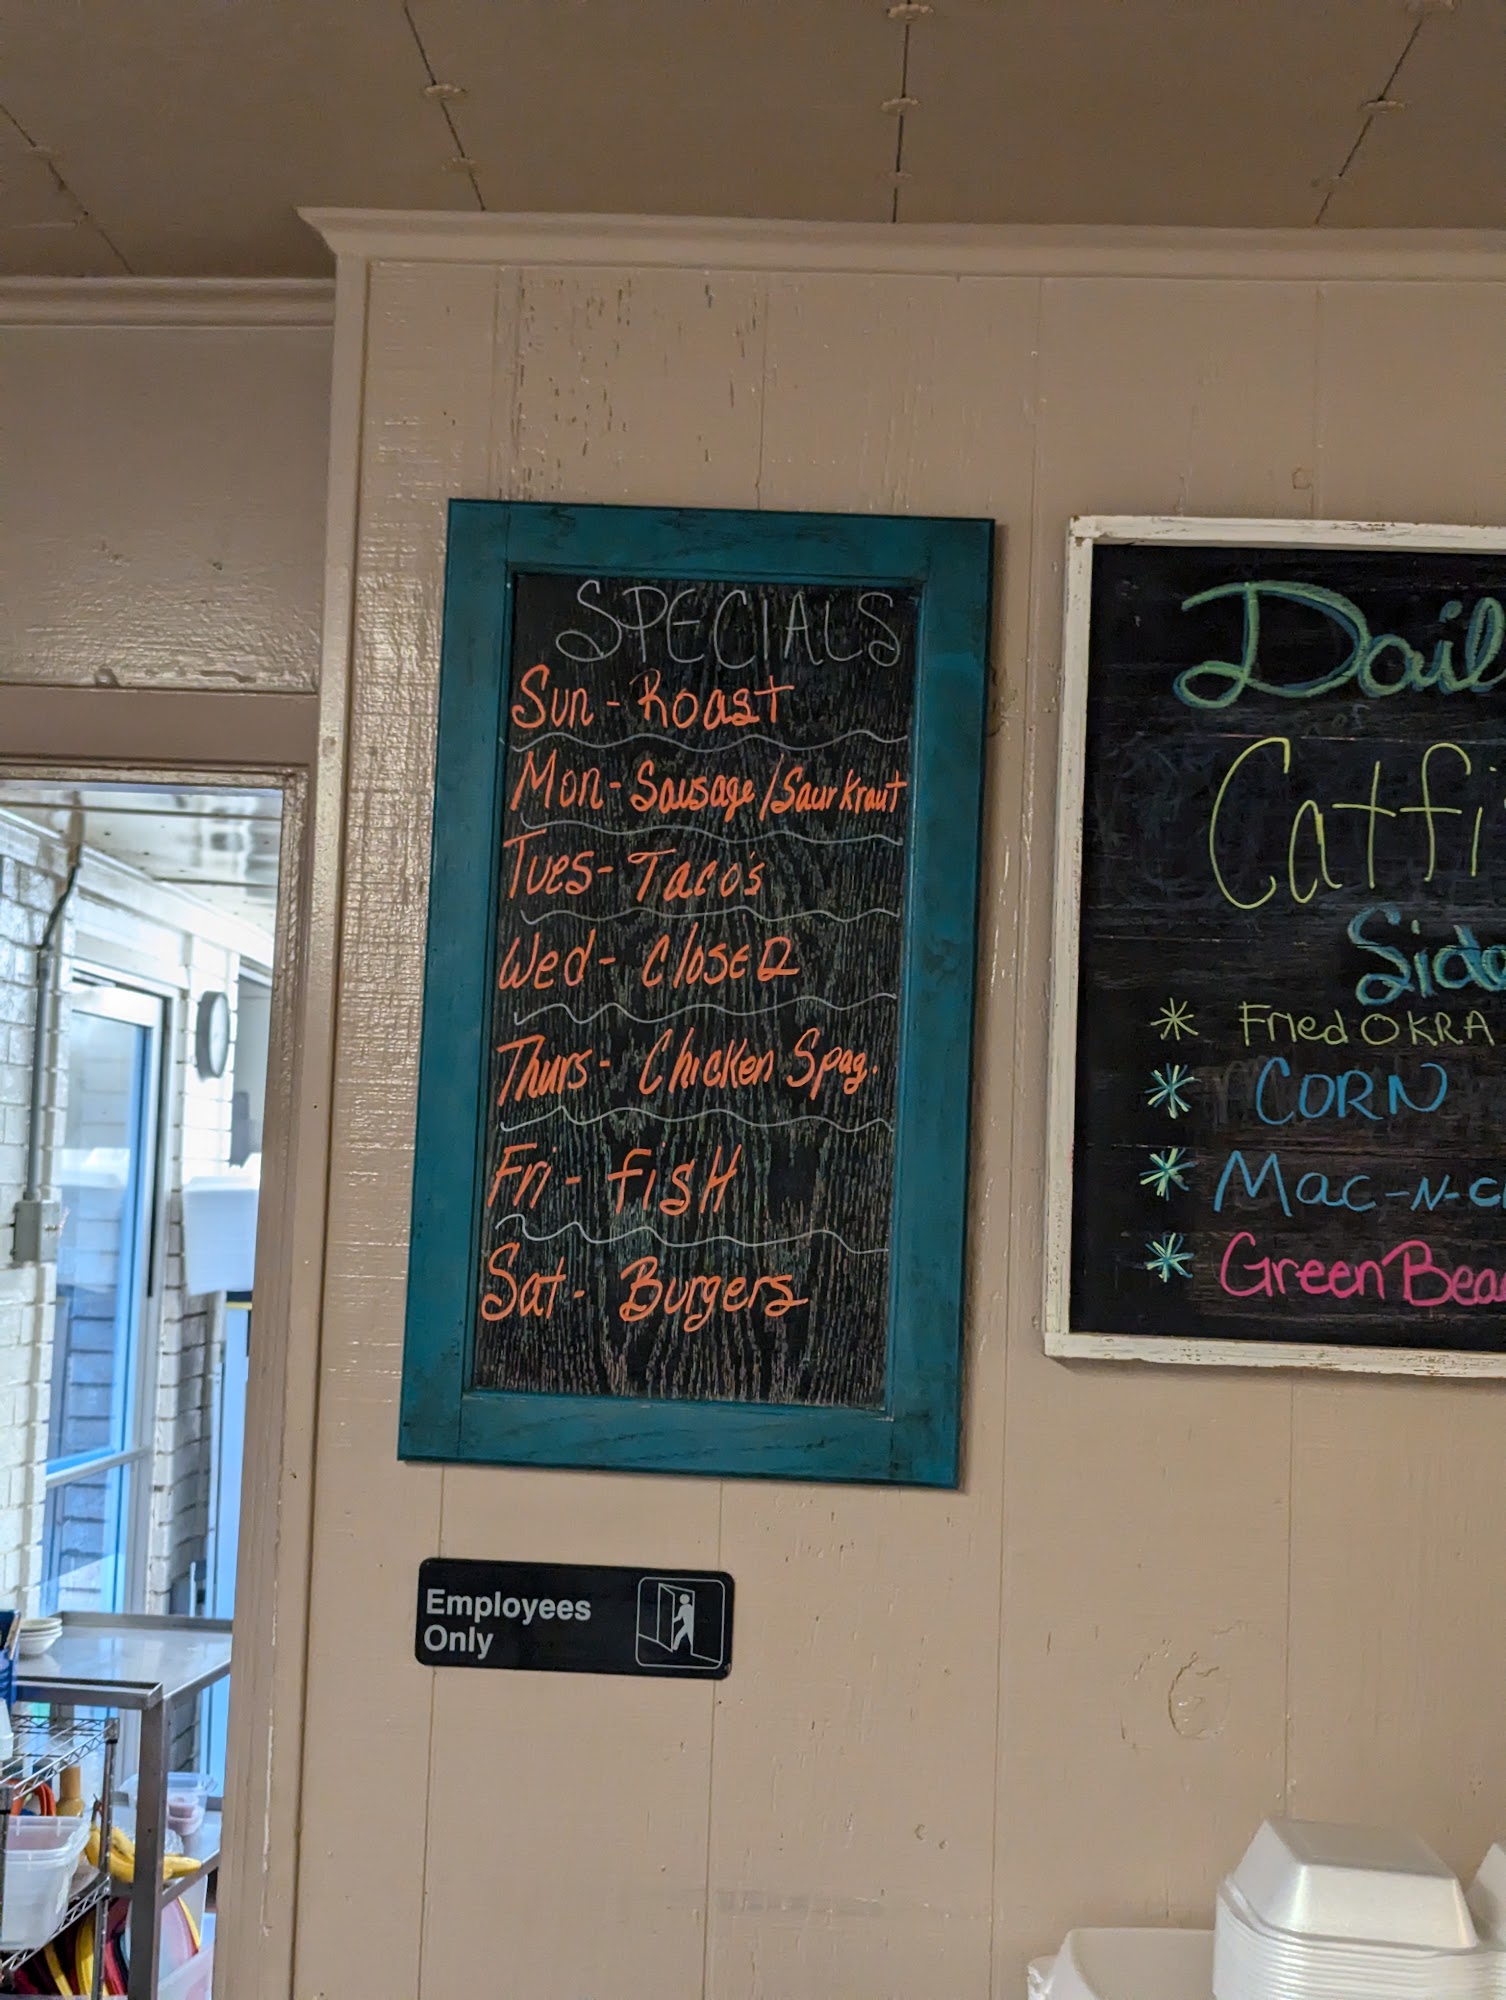 SPECIALS
Sun - Roast
Mon - Sausage / Saurkraut
Tues - Taco's
Wed - Closed
Thurs - Chicken Spag.
Fri - fish
Sat - Burgers
Employees
Only
Dail
Catfi
Side
* Fried OKRA
* CORN
* Mac-N-c
* Green Bea